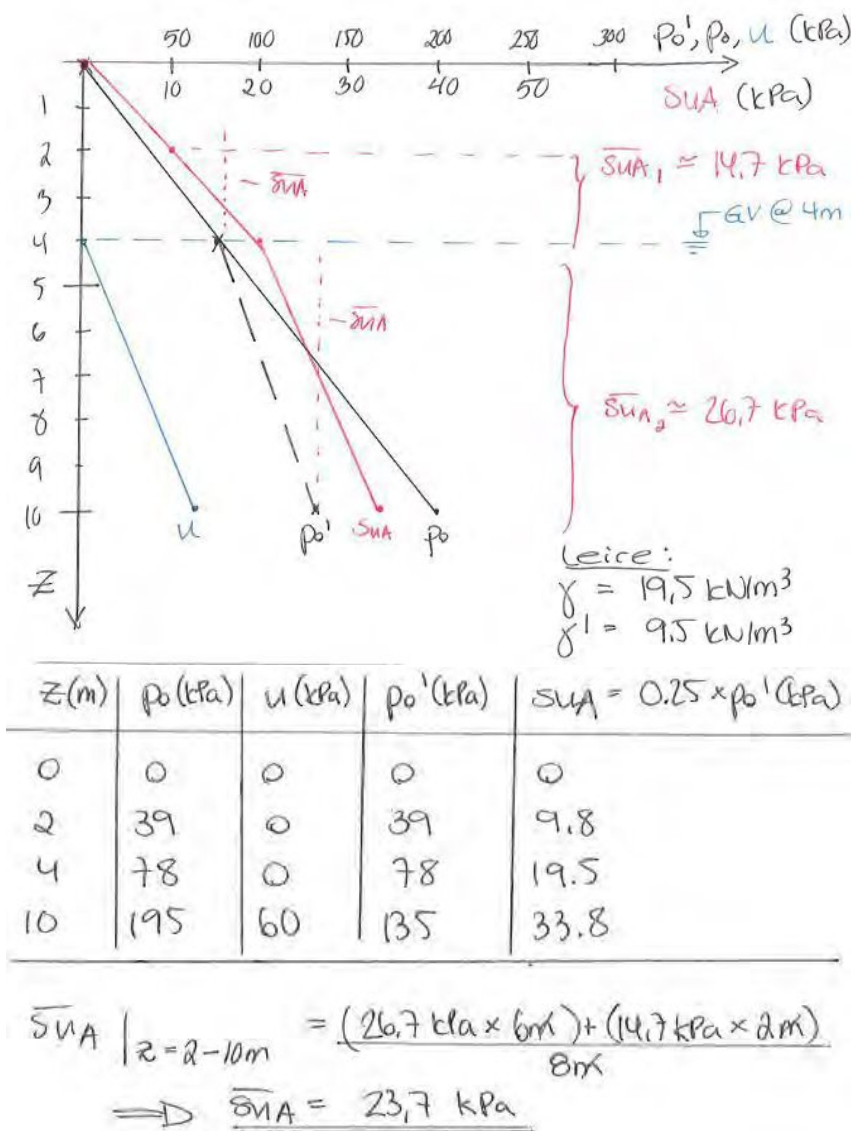 50 100 150 200 250 300 po', po, u (kPa)
10 20 30 40 50 suA (kPa)
1
2
3
4
5
6
7
8
9
10
z
suA
suA
suA1 ≃ 14,7 kPa
GV @ 4m
suA2 ≃ 26,7 kPa
u po' suA po
Leire:
γ = 19,5 kN/m³
γ' = 9.5 kN/m³
z(m) po(kPa) u(kPa) po'(kPa) suA = 0.25 × po'(kPa)
0 0 0 0 0
2 39 0 39 9.8
4 78 0 78 19.5
10 195 60 135 33.8
suA | z=2-10m = (26,7 kPa × 6m) + (14,7 kPa × 2m)
8m
⇒ suA = 23,7 kPa